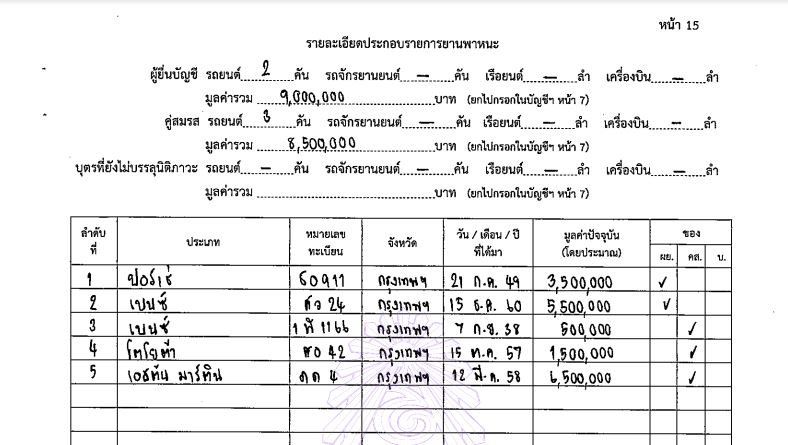 หน้า 15
รายละเอียดประกอบรายการยานพาหนะ
ผู้ยื่นบัญชี รถยนต์ 2 คัน รถจักรยานยนต์ — คัน เรือยนต์ — ลำ เครื่องบิน — ลำ
มูลค่ารวม 9,000,000 บาท (ยกไปกรอกในบัญชีฯ หน้า 7)
คู่สมรส รถยนต์ 3 คัน รถจักรยานยนต์ — คัน เรือยนต์ — ลำ เครื่องบิน — ลำ
มูลค่ารวม 8,500,000 บาท (ยกไปกรอกในบัญชีฯ หน้า 7)
บุตรที่ยังไม่บรรลุนิติภาวะ รถยนต์ — คัน รถจักรยานยนต์ — คัน เรือยนต์ — ลำ เครื่องบิน — ลำ
มูลค่ารวม บาท (ยกไปกรอกในบัญชีฯ หน้า 7)
ลำดับที่ ประเภท หมายเลขทะเบียน จังหวัด วัน / เดือน / ปี ที่ได้มา มูลค่าปัจจุบัน (โดยประมาณ) ของ
ผย. คส. บ.
1 ปอร์เช่ กรุงเทพฯ 21 ก.ค. 49 3,500,000 ✓
2 เบนซ์ 24 กรุงเทพฯ 15 ธ.ค. 60 5,500,000 ✓
3 เบนซ์ 1166 กรุงเทพฯ 7 ก.ย. 38 500,000 ✓
4 โตโยต้า 42 กรุงเทพฯ 15 ต.ค. 57 1,500,000 ✓
5 เอสตัน มาร์ติน 4 กรุงเทพฯ 12 มี.ค. 58 6,500,000 ✓